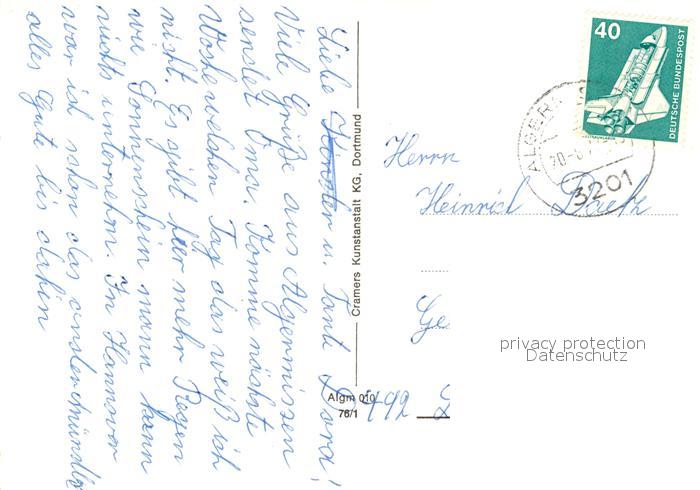 Liebe Kirsten u. Tante Dora!
Viele Grüße aus Algermissen
sendet Oma. Komme nächste
Woche welchen Tag das weiß ich
nicht. Es gibt hier mehr Regen
wie Sonnenschein mann kann
nichts unternehm. In Hannover
war ich schon das andermündlich
alles Gute bis dahin
Cramers Kunstanstalt KG, Dortmund
Algm 010
76/1
40
DEUTSCHE BUNDESPOST
ALGERM
20.-6.
3201
Herrn
Heinrich
Ge
privacy protection
Datenschutz
492